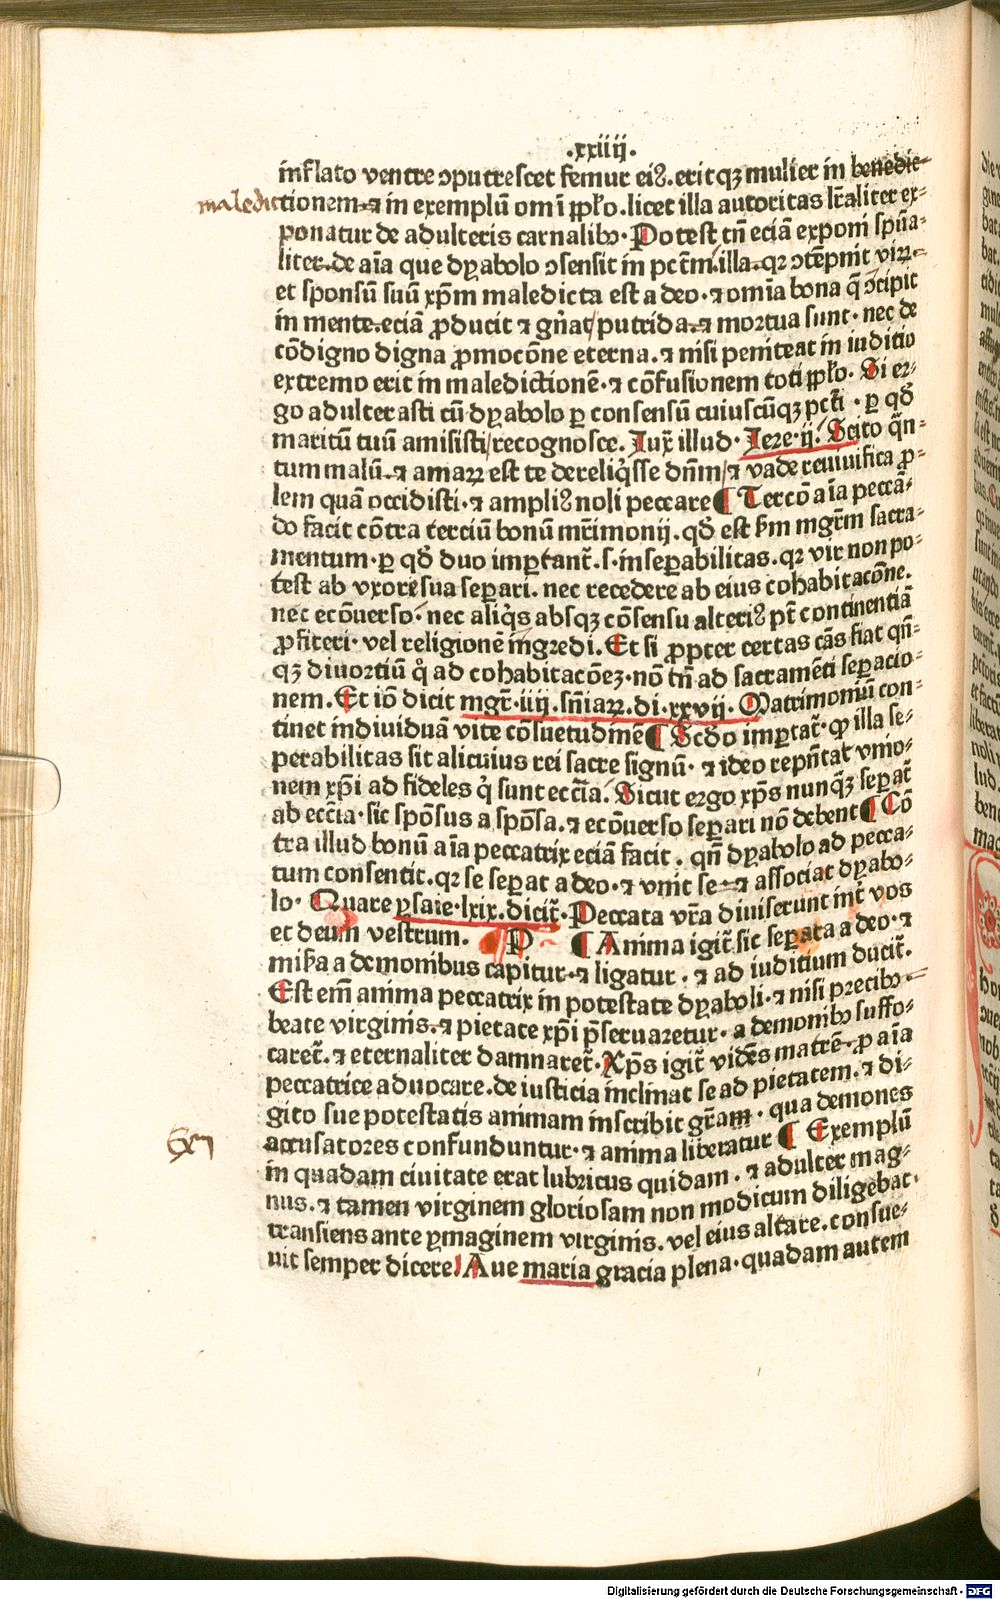 .xxiiij.
inflato ventre ↄputrescet femur eiꝰ. erit qꝫ mulier in benedic-
maledictionem ⁊ in exemplū omī ppl̓o. licet illa autoritas lr̄aliter ex-
ponatur de adulteris carnalibꝰ. Potest tn̄ eciā exponi spūa-
liter. de aīa que dyabolo ↄsensit in pctm̄. illa. qꝛ ↄtēpnit viꝝ
et sponsū suū xp̄m maledicta est a deo. ⁊ omīa bona q̄ ↄcipit
in mente. eciā ꝓducit ⁊ gn̄at putrida. ⁊ mortua sunt. nec de
cōdigno digna ꝓmocōne eterna. ⁊ nisi peniteat in iuditio
extremo erit in maledictionē. ⁊ cōfusionem toti ppl̓o. Si er-
go adulterasti cū dyabolo ꝑ consensū cuiuscūqꝫ pcti̅. ꝑ qd̄
maritū tuū amisisti recognosce. Iux̄ illud. Iere. ij. Scito q̄n-
tum malū. ⁊ amaꝝ est te dereliq̓sse dn̄m ⁊ vade reuiuifica ꝓ-
lem quā occidisti. ⁊ ampliꝰ noli peccare ¶ Tercō aīa peccā-
do facit cōtra terciū bonū mr̄imonij. qd̄ est ẜm mgr̄m sacra-
mentum. ꝑ qd̄ duo imꝑtant̄. s. inseꝑabilitas. qꝛ vir non po-
test ab vxore sua seꝑari. nec recedere ab eius cohabitacōne.
nec ecōuerso. nec aliq̓s absqꝫ cōsensu alteriꝰ pt̄ continentiā
ꝓfiteri. vel religionē ingredi. Et si ꝓpter certas cās fiat qn̄-
qꝫ diuortiū q̊ ad cohabitacōeꝫ. nō tn̄ ad sacramēti seꝑacio-
nem. Et iō dicit mgr̄. iiij. sn̄iaꝝ. di. xxvij. Matrimoniū con-
tinet indiuiduā vite cōsuetudinē ¶ Scd̄o imꝑtat̄. ꝙ illa se-
perabilitas sit alicuius rei sacre signū. ⁊ ideo repn̄tat vnio-
nem xp̄i ad fideles q̓ sunt ecc̄ia. Sicut ergo xp̄s nunqꝫ̄ seꝑat̄
ab ecc̄ia. sic spōsus a spōsa. ⁊ ecōuerso seꝑari nō debent ¶ Cō
tra illud bonū aīa peccatrix eciā facit. qn̄ dyabolo ad pecca-
tum consentit. qꝛ se seꝑat a deo. ⁊ vnit se ⁊ associat dyabo-
lo. Quare ysaie. lxix. dicit̄. Peccata vr̄a diuiserunt int̄ vos
et deum vestrum. P ¶ Anima igit̄ sic seꝑata a deo. ⁊
misa a demonibus capitur. ⁊ ligatur. ⁊ ad iuditium ducit̄.
Est em̄ anima peccatrix in potestate dyaboli. ⁊ nisi precibꝰ
beate virginis. ⁊ pietate xp̄i p̄seruaretur. a demonibꝰ suffo-
caret̄. ⁊ eternaliter damnaret̄. Xp̄s igit̄ vidēs matrē. ꝓ aīa
peccatrice aduocare. de iusticia inclinat se ad pietatem. ⁊ di-
gito sue potestatis animam inscribit gr̄am. qua demones
accusatores confunduntur. ⁊ anima liberatur ¶ Exemplū
in quadam ciuitate erat lubricus quidam. ⁊ adulter mag-
nus. ⁊ tamen virginem gloriosam non modicum diligebat.
transiens ante ymaginem virginis. vel eius altare. consue-
uit semper dicere. Aue maria gracia plena. quadam autem
Digitalisierung gefördert durch die Deutsche Forschungsgemeinschaft - DFG